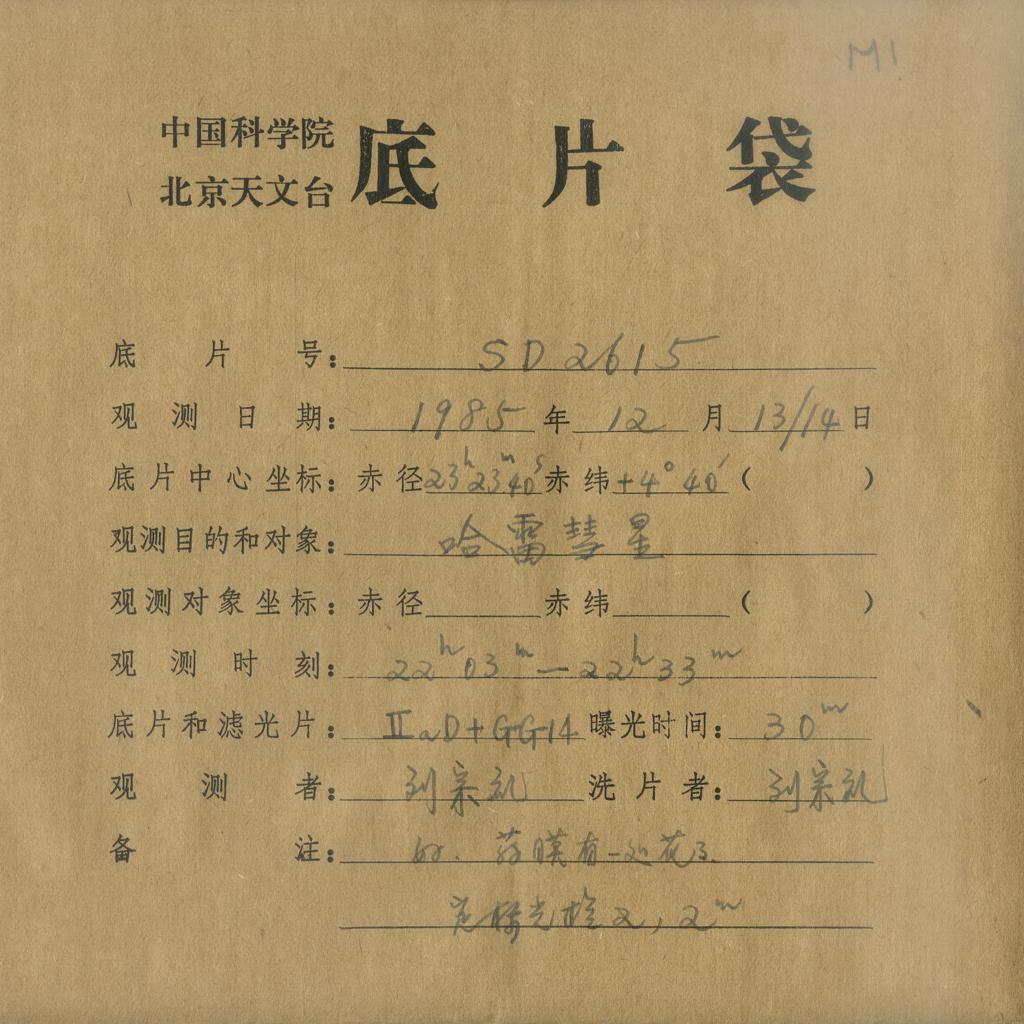 M1
中国科学院
北京天文台
底片袋
底片号：SD2615
观测日期：1985年12月13/14日
底片中心坐标：赤径23ʰ23ᵐ40ˢ赤纬+4°40′（ ）
观测目的和对象：哈雷彗星
观测对象坐标：赤径 赤纬 （ ）
观测时刻：22ʰ03ᵐ—22ʰ33ᵐ
底片和滤光片：ⅡaD+GG14 曝光时间：30ᵐ
观测者：刘宗礼 洗片者：刘宗礼
备注：好. 药膜有一处花了.
光 2，2ᵐ